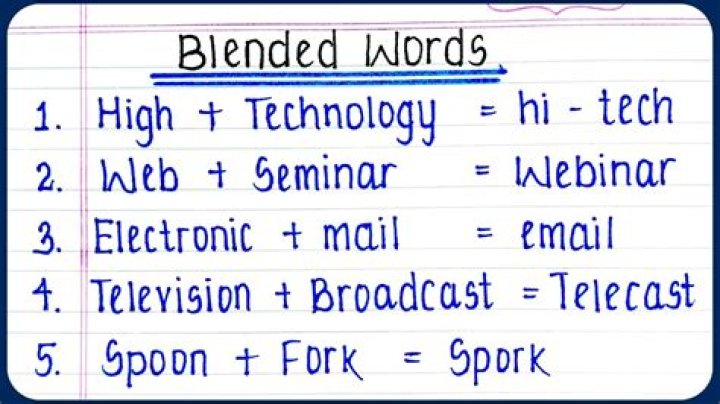 Blended Words
1. High + Technology = hi - tech
2. Web + Seminar = Webinar
3. Electronic + mail = email
4. Television + Broadcast = Telecast
5. Spoon + Fork = Spork